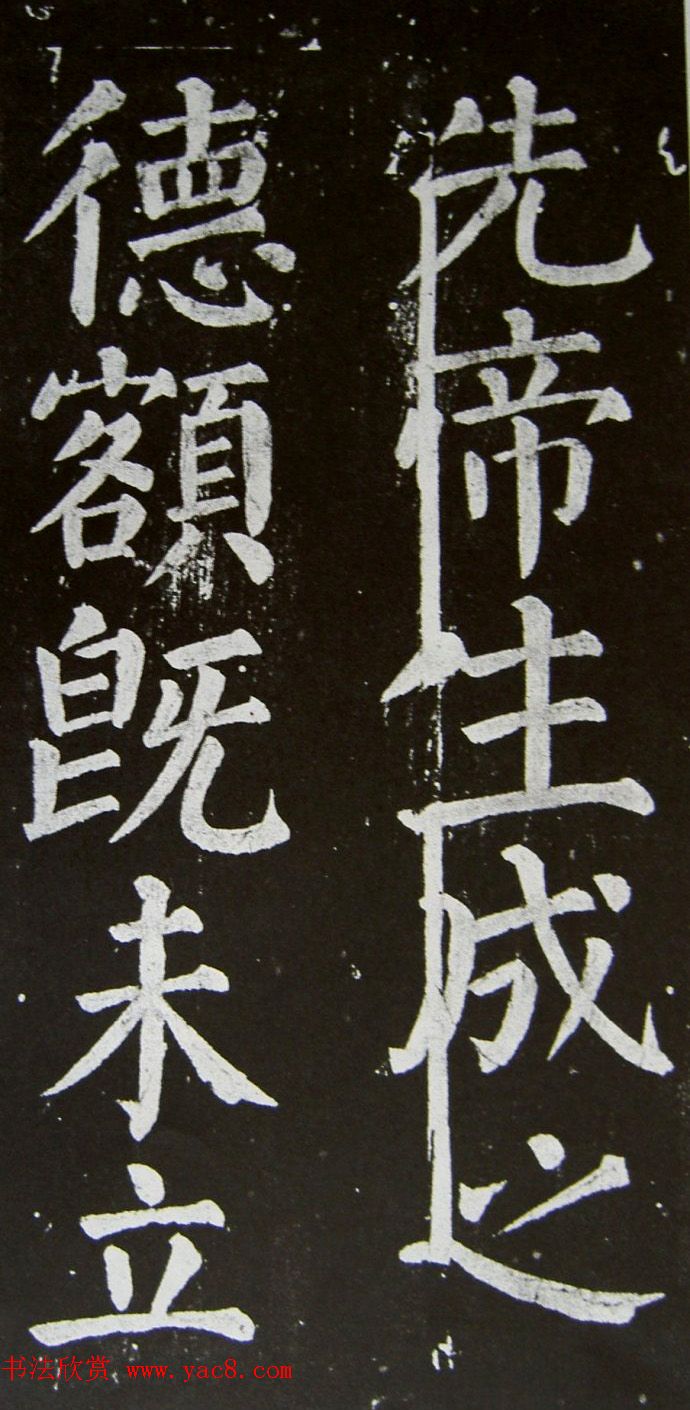 先帝生成之
德額既未立
书法欣赏 www.yac8.com